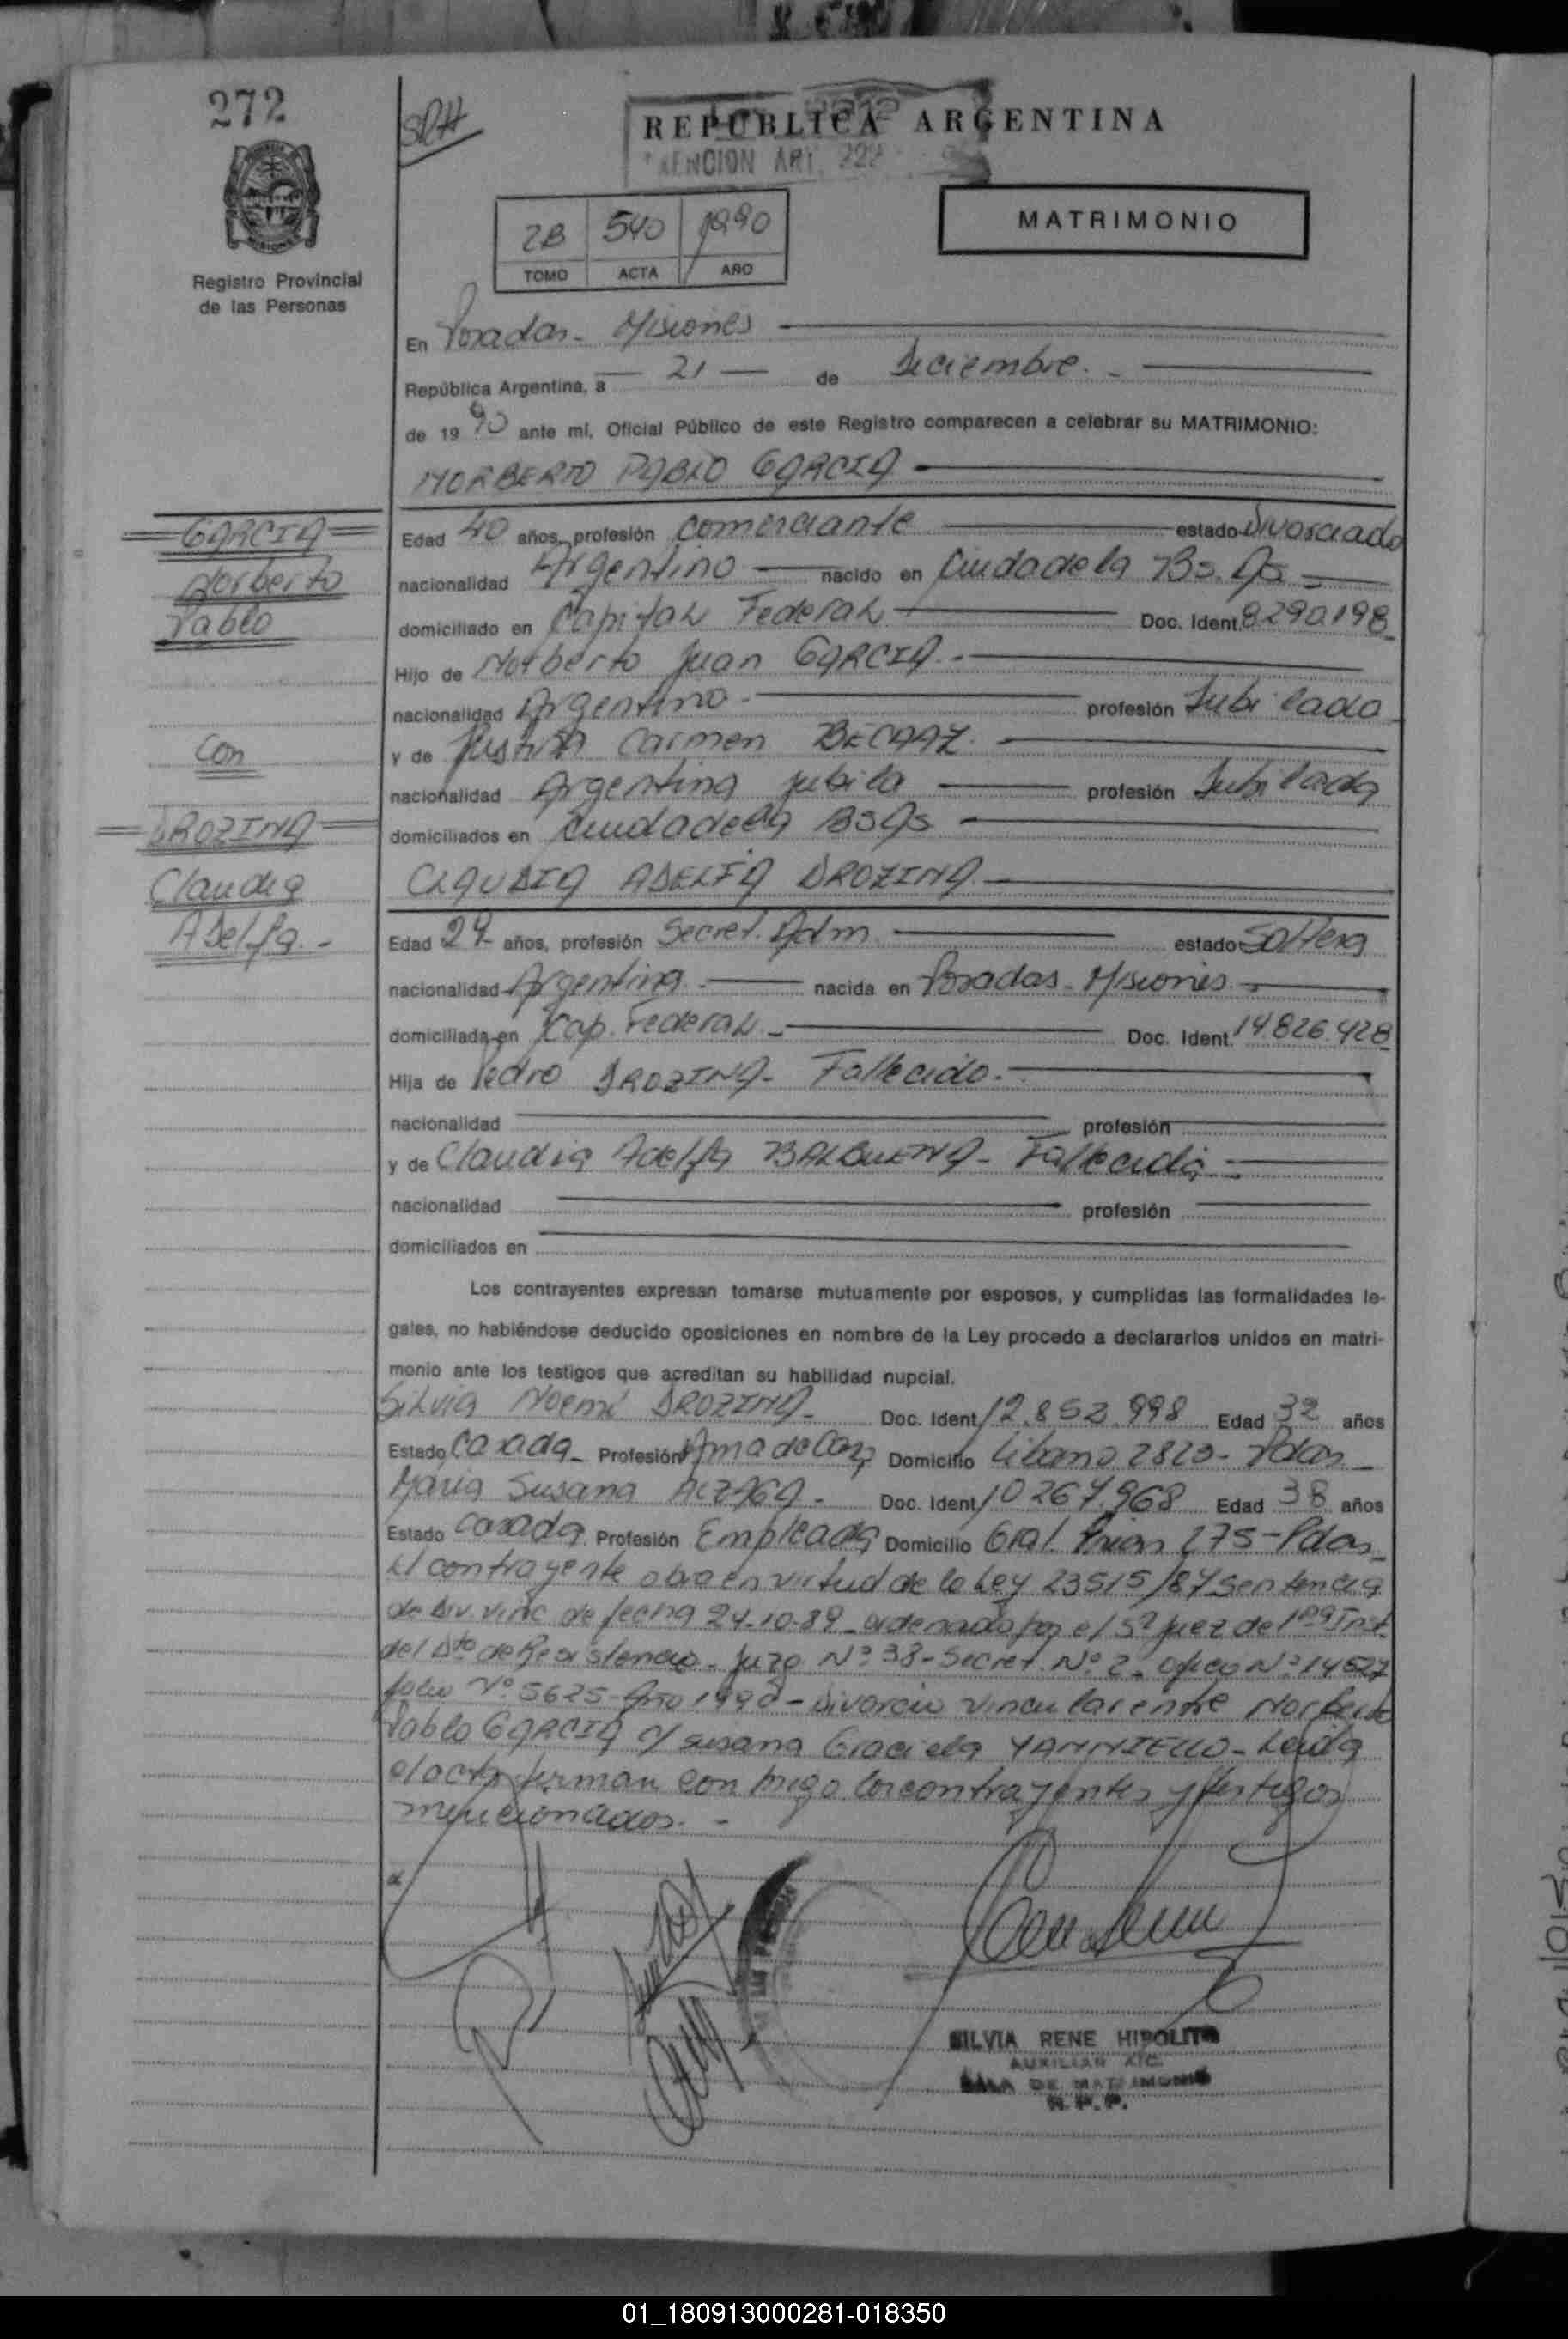 272
SRH
REPUBLICA ARGENTINA
ART. 222
MATRIMONIO
2B 540 1990
TOMO ACTA AÑO
Registro Provincial
de las Personas
En Posadas - Misiones
República Argentina, a 21 de Diciembre.-
de 1990 ante mí, Oficial Público de este Registro comparecen a celebrar su MATRIMONIO:
NORBERTO PABLO GARCIA
GARCIA
Norberto
Pablo
con
DROZINA
Claudia
Adelfa.-
Edad 40 años, profesión comerciante estado Divorciado
nacionalidad Argentino nacido en Ciudadela Bs. As
domiciliado en Capital Federal Doc. Ident. 8290.198
Hijo de Norberto Juan GARCIA.-
nacionalidad Argentino- profesión Jubilado
y de Carmen
nacionalidad Argentina jubila profesión Jubilada
domiciliados en Ciudadela Bs As
CLAUDIA ADELFA DROZINA
Edad años, profesión Secret. Adm estado Soltera
nacionalidad Argentina.- nacida en Posadas - Misiones
domiciliada en Cap. Federal.- Doc. Ident. 14.826.428
Hija de Pedro DROZINA- Fallecido.-
nacionalidad profesión
y de Claudia Adelfa BALBUENA- Fallecida
nacionalidad profesión
domiciliados en
Los contrayentes expresan tomarse mutuamente por esposos, y cumplidas las formalidades le-
gales, no habiéndose deducido oposiciones en nombre de la Ley procedo a declararlos unidos en matri-
monio ante los testigos que acreditan su habilidad nupcial.
Silvia Noemí DROZINA- Doc. Ident. 12.852.998 Edad 32 años
Estado Casada- Profesión Ama de Casa Domicilio Libano 2820- Pdas
Maria Susana ALZAGA- Doc. Ident. 10267.968 Edad 38 años
Estado Casada Profesión Empleada Domicilio Gral. 275-Pdas-
El contrayente obra en virtud de la Ley 23515/87 sentencia
de div. vinc. de fecha 24-10-89- ordenado por el Sr Juez de 1ra Inst.
del Dto de Resistencia- Juzg Nº 38- Secret. Nº 2- oficio Nº 14527
folio Nº 5625- Año 1990- Divorcio vincular entre Norberto
Pablo GARCIA c/ Susana Graciela YANNIELLO- Leida
el acta firman conmigo los contrayentes y testigos
mencionados.-
SILVIA RENE HIPOLITO
AUXILIAR
SALA DE MATRIMONIO
R. P. P.
01_180913000281-018350